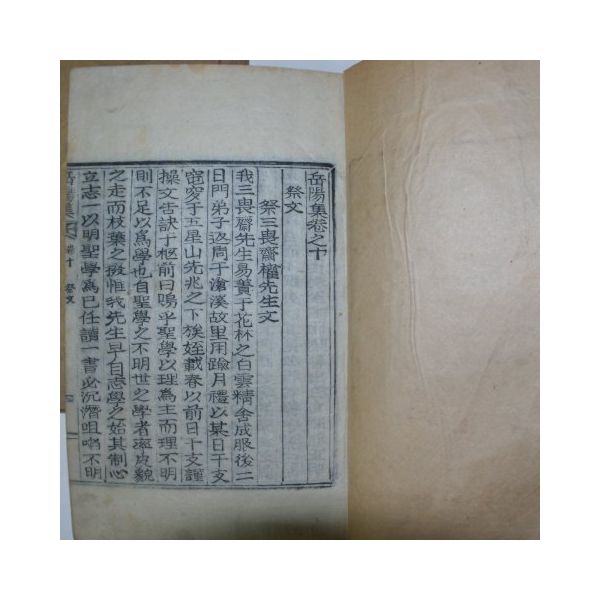 岳陽集卷之十
祭文
祭三畏齋權先生文
我三畏齋先生易簀于花林之白雲精舍成服後二
日門弟子返周于滄溪故里用踰月禮以某日干支
窆于五星山先兆之下族姪載春以前日干支謹
操文告訣于柩前曰嗚乎聖學以理爲主而理不明
則不足以爲學也自聖學之不明世之學者率皮貌
之走而枝葉之惟我先生早自志學之始其制心
立志一以明聖學爲已任讀一書必沉潛咀不明
岳陽集 卷十 祭文